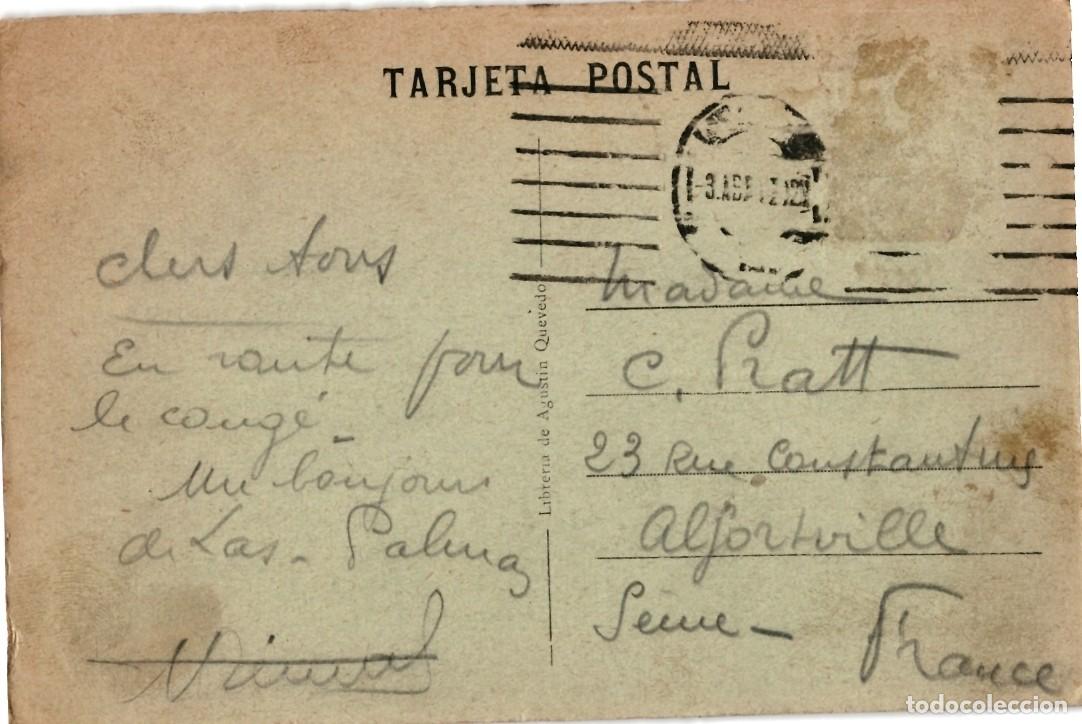 TARJETA POSTAL
chers tous
En route pour
le congé.
Un bonjour
de Las-Palmas
Librería de Agustín Quevedo
Madame
C. Pratt
23 Rue
Alfortville
Seine-
France
todocoleccion